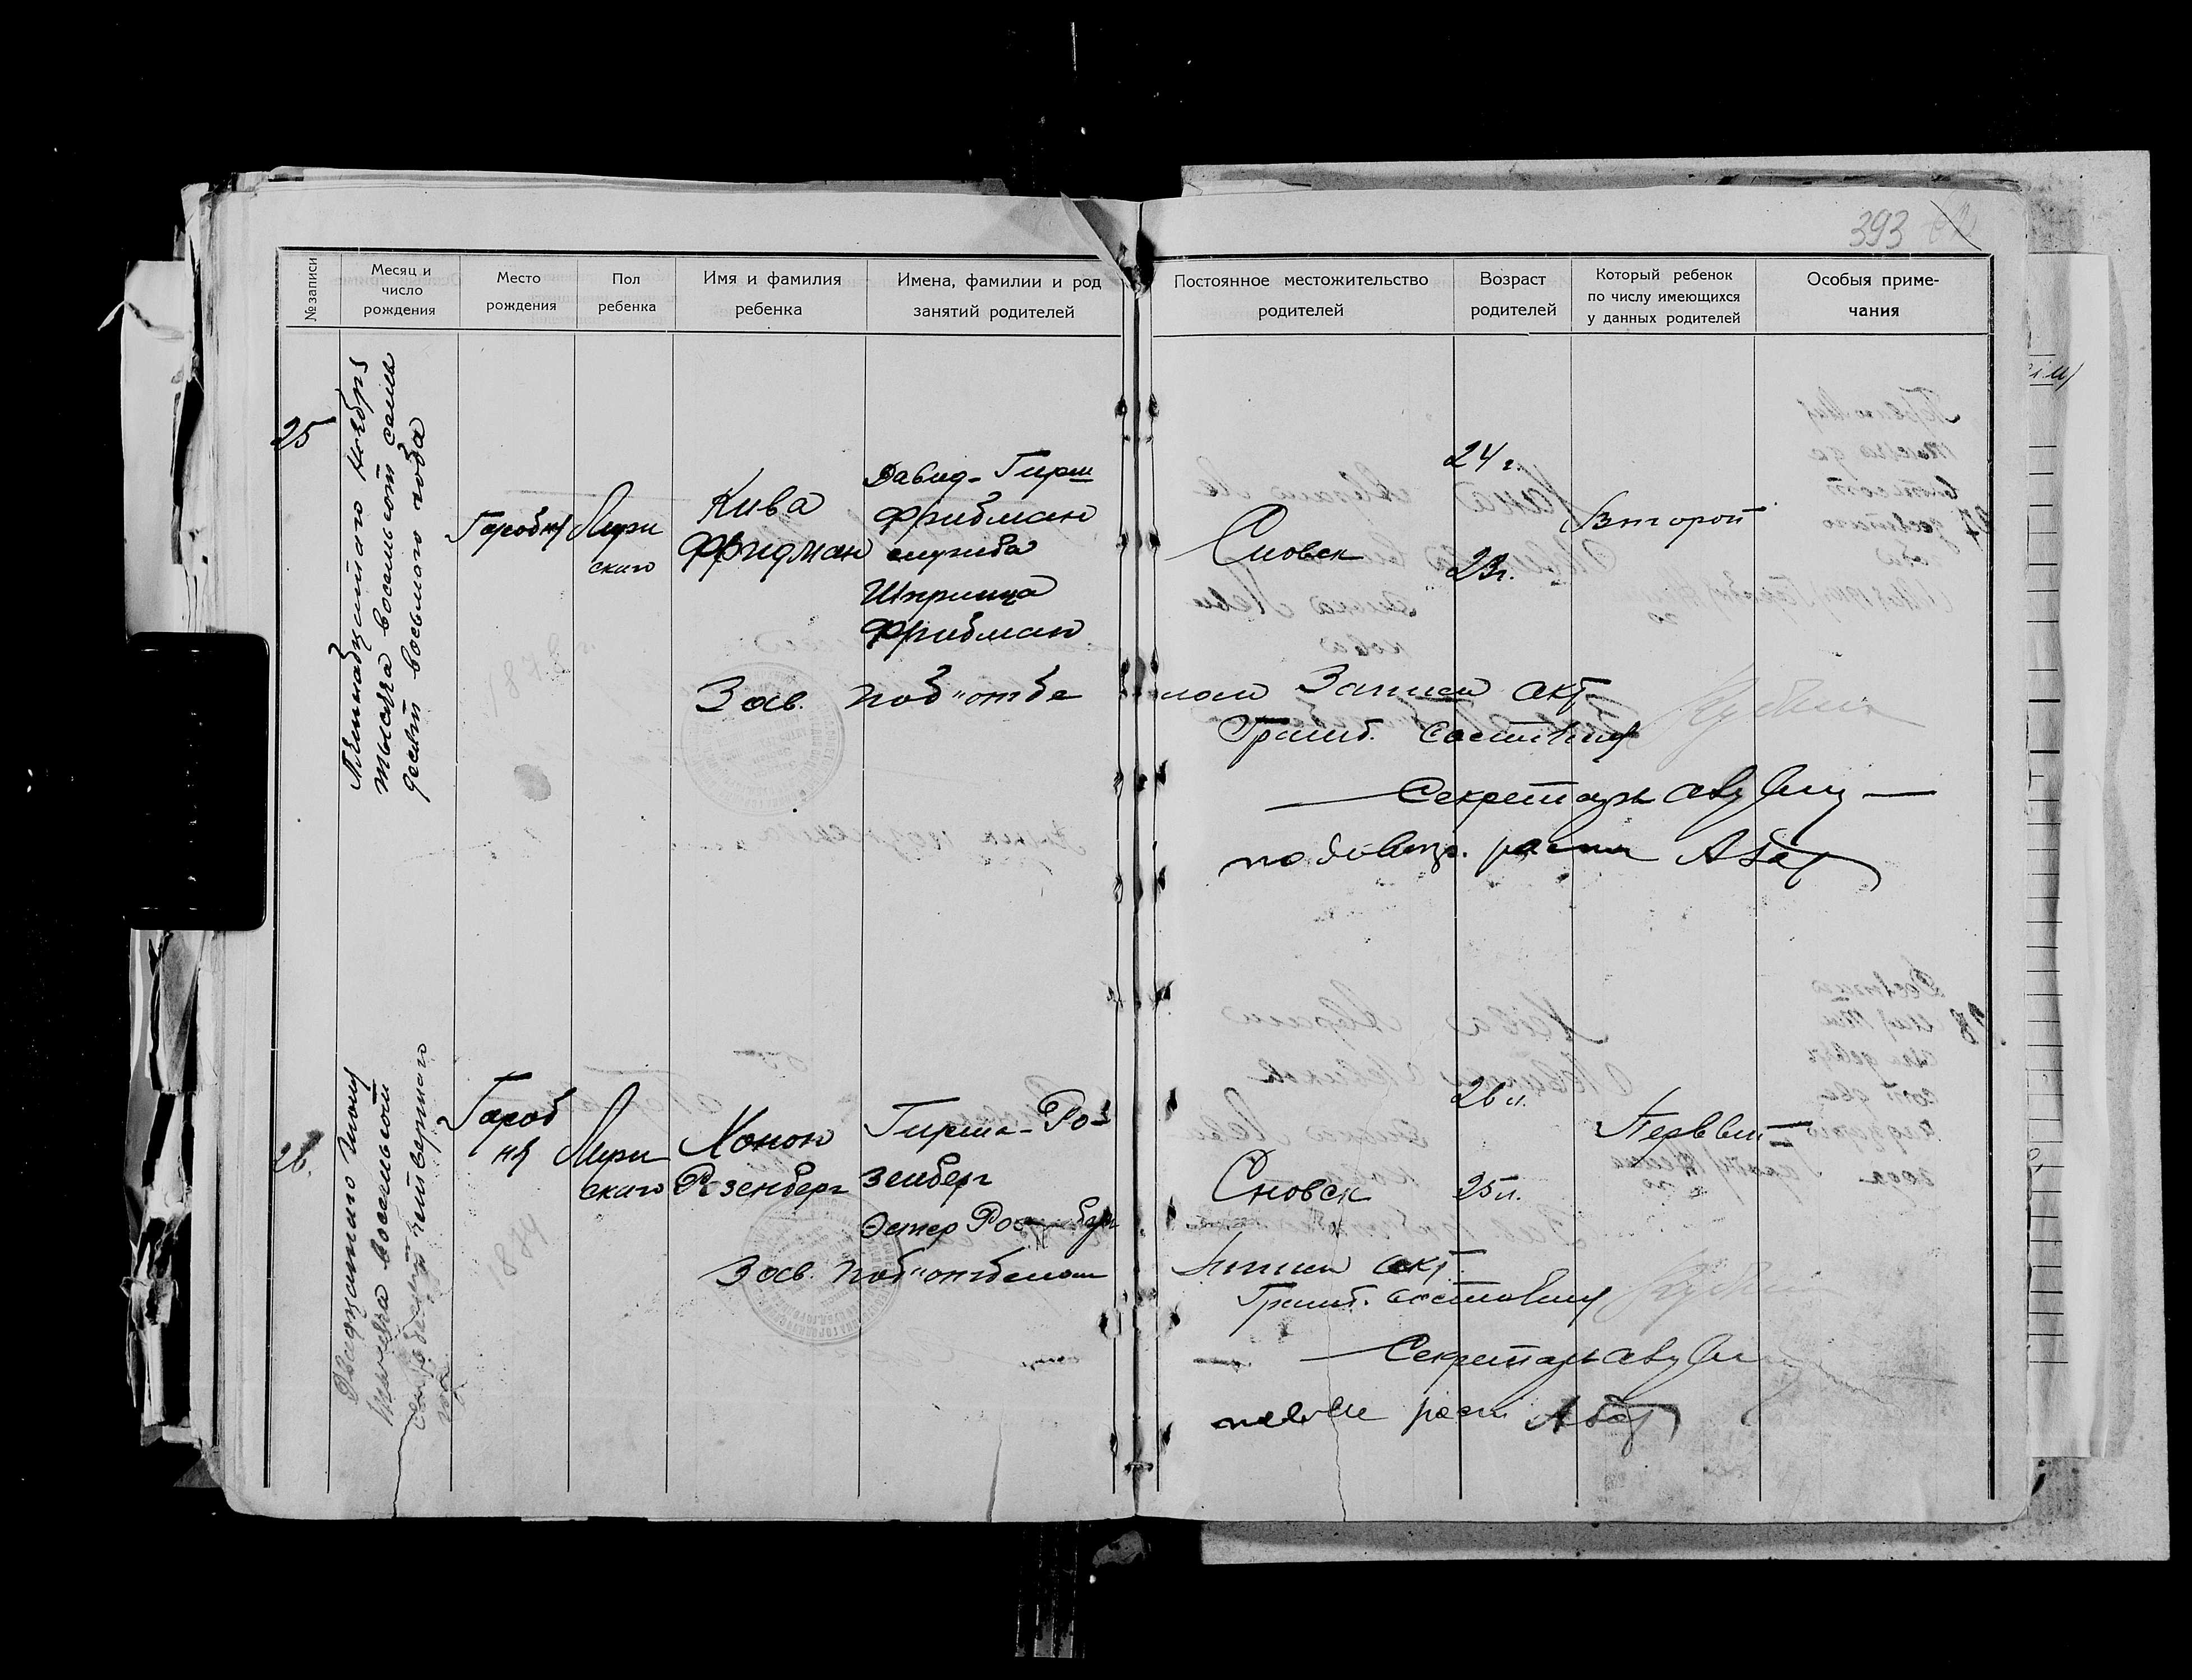 393
№ записи
Месяц и
число
рождения
Место
рождения
Пол
ребенка
Имя и фамилия
ребенка
Имена, фамилии и род
занятий родителей
Постоянное местожительство
родителей
Возраст
родителей
Который ребенок
по числу имеющихся
у данных родителей
Особыя приме-
чания
25
Пятнадцатаго Ноября
тысяча восемьсот семь
десят восьмого года
Городня
Мужи
скаго
Кива
Фридман
Давид-Гирш
Фридман
служба
Шпринца
Фридман
Сновск
24 г
23 г.
Второй
Зав. Под"отде
лом Записи акт.
Гражд. Состояния
Секретарь
1878
26.
Двадцатаго
тысяча восемьсот
семьдесят четвертаго
год
Город
ня
Мужи
скаго
Хонон
Розенберг
Гирша-Ро-
зенберг
Эстер
Сновск
26 л.
25 л.
Первый
Зав. Под"отделом
Записи акт.
Гражд. состояния
Секретарь
1874